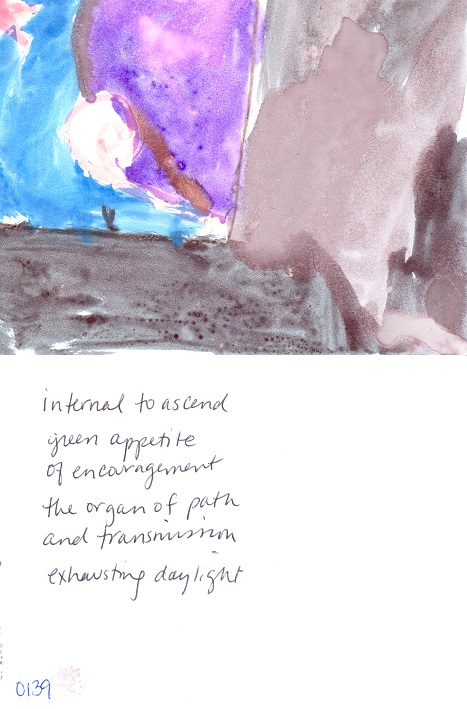 internal to ascend
green appetite
of encouragement
the organ of path
and transmission
exhausting daylight
0139